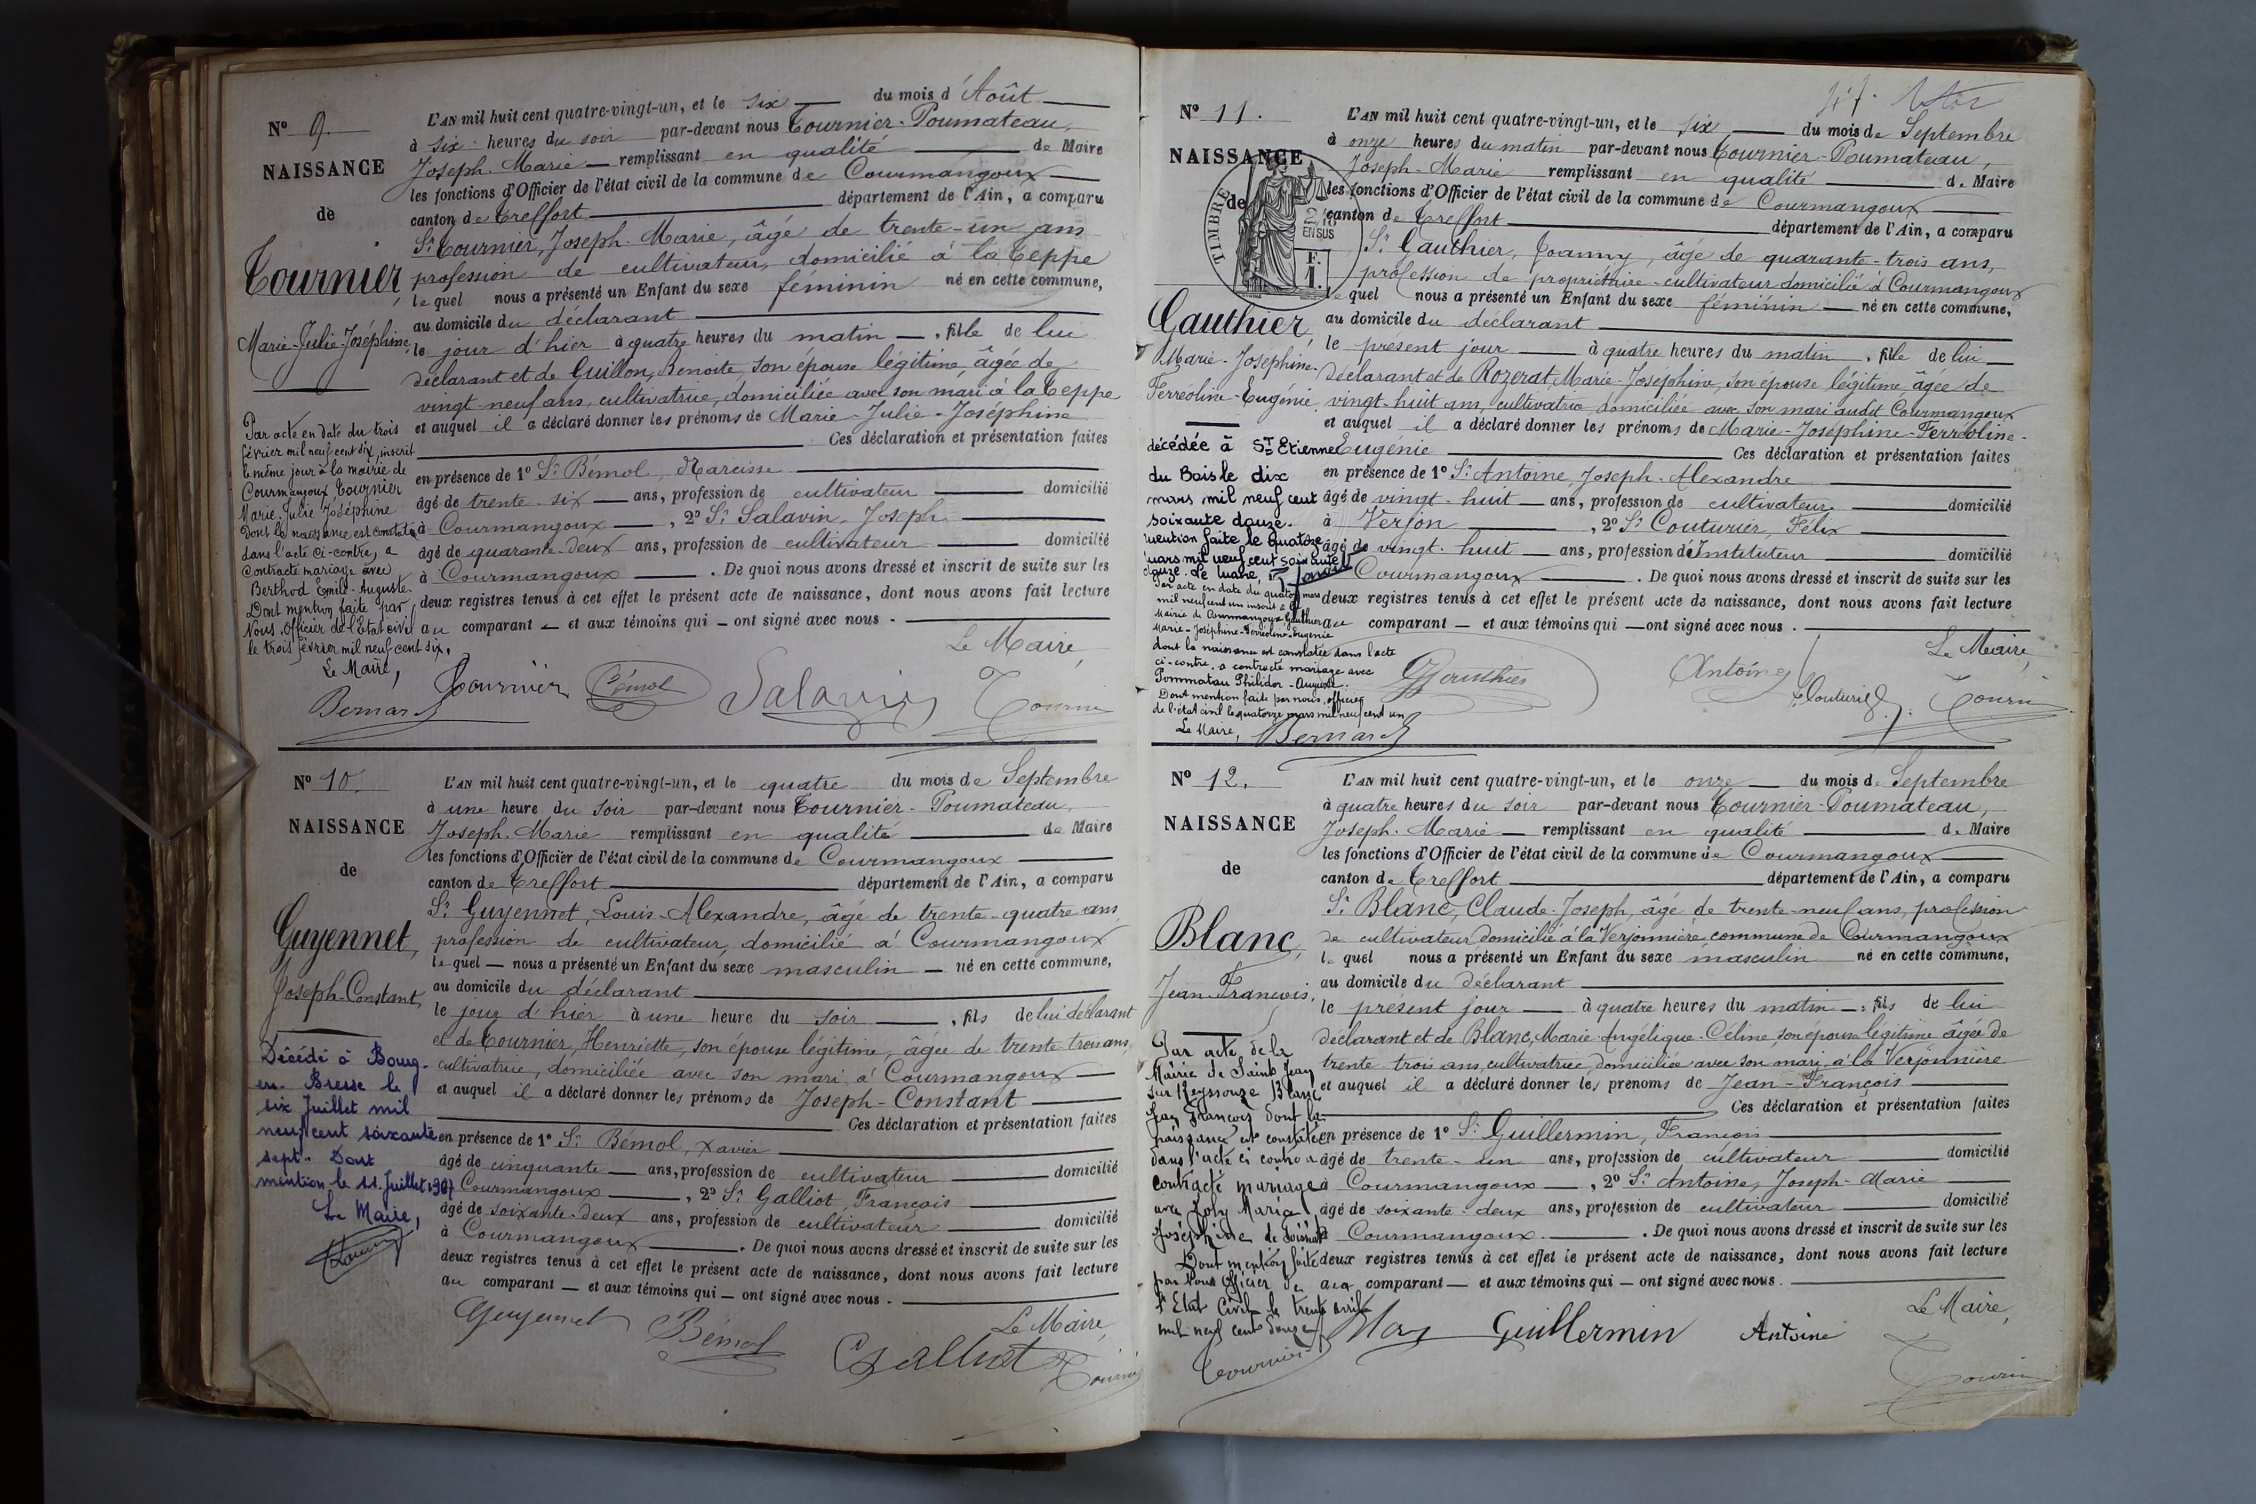 Nº 9.
NAISSANCE
de
Tournier,
Marie-Julie-Joséphine,
Par acte en date du trois
février mil neuf cent six, inscrit
le même jour à la mairie de
Courmangoux Tournier
Marie Julie Joséphine
dont la naissance est constatée
dans l'acte ci-contre, a
contracté mariage avec
Berthod Emile-Auguste.
Dont mention faite par
Nous, Officier de l'Etat civil
le trois février mil neuf cent six.
Le Maire,
Bernard
L'AN mil huit cent quatre-vingt-un, et le six du mois d'Août
à six heures du soir par-devant nous Tournier-Poumateau,
Joseph-Marie remplissant en qualité de Maire
les fonctions d'Officier de l'état civil de la commune de Courmangoux
canton de Treffort département de l'Ain, a comparu
Sr Tournier, Joseph-Marie, âgé de trente-un ans
profession de cultivateur, domicilié à la Teppe
lequel nous a présenté un Enfant du sexe féminin né en cette commune,
au domicile du déclarant
le jour d'hier à quatre heures du matin, fille de lui
déclarant et de Guillon, Benoite, son épouse légitime, âgée de
vingt-neuf ans, cultivatrice, domiciliée avec son mari à la Teppe
et auquel il a déclaré donner les prénoms de Marie-Julie-Joséphine
Ces déclaration et présentation faites
en présence de 1º Sr Bémol, Narcisse
âgé de trente-six ans, profession de cultivateur domicilié
à Courmangoux, 2º Sr Salavin, Joseph
âgé de quarante-deux ans, profession de cultivateur domicilié
à Courmangoux. De quoi nous avons dressé et inscrit de suite sur les
deux registres tenus à cet effet le présent acte de naissance, dont nous avons fait lecture
au comparant et aux témoins qui ont signé avec nous.
Le Maire,
Tournier Bémol Salavin Tournier
Nº 10.
NAISSANCE
de
Guyennet,
Joseph-Constant,
Décédé à Bourg-
en-Bresse le
six Juillet mil
neuf cent soixante
sept. Dont
mention le 11 Juillet 1967
Le Maire,
L'AN mil huit cent quatre-vingt-un, et le quatre du mois de Septembre
à une heure du soir par-devant nous Tournier-Poumateau,
Joseph-Marie remplissant en qualité de Maire
les fonctions d'Officier de l'état civil de la commune de Courmangoux
canton de Treffort département de l'Ain, a comparu
Sr Guyennet, Louis-Alexandre, âgé de trente-quatre ans
profession de cultivateur, domicilié à Courmangoux
lequel nous a présenté un Enfant du sexe masculin né en cette commune,
au domicile du déclarant
le jour d'hier à une heure du soir, fils de lui déclarant
et de Tournier, Henriette, son épouse légitime, âgée de trente trois ans,
cultivatrice, domiciliée avec son mari à Courmangoux
et auquel il a déclaré donner les prénoms de Joseph-Constant
Ces déclaration et présentation faites
en présence de 1º Sr Bémol, Xavier
âgé de cinquante ans, profession de cultivateur domicilié
à Courmangoux, 2º Sr Galliot, François
âgé de soixante-deux ans, profession de cultivateur domicilié
à Courmangoux. De quoi nous avons dressé et inscrit de suite sur les
deux registres tenus à cet effet le présent acte de naissance, dont nous avons fait lecture
au comparant et aux témoins qui ont signé avec nous.
Le Maire,
Guyennet Bémol Galliot Tournier
Nº 11.
NAISSANCE
de
TIMBRE
2/10
EN SUS
F.
1.
Gauthier,
Marie-Joséphine-
Ferréoline-Eugénie,
décédée à St Etienne
du Bois le dix
mars mil neuf cent
soixante douze.
mention faite le quatorze
mars mil neuf cent soixante
douze. Le Maire,
Par acte en date du quatorze mars
mil neuf cent un inscrit à la
Mairie de Courmangoux Gauthier
Marie-Joséphine-Ferréoline-Eugénie
dont la naissance est constatée dans l'acte
ci-contre, a contracté mariage avec
Pommatau Philidor-Auguste.
Dont mention faite par nous, officier
de l'état civil le quatorze mars mil neuf cent un
Le Maire, Bernard
L'AN mil huit cent quatre-vingt-un, et le six, du mois de Septembre
à onze heures du matin par-devant nous Tournier-Poumateau,
Joseph-Marie remplissant en qualité de Maire
les fonctions d'Officier de l'état civil de la commune de Courmangoux
canton de Treffort département de l'Ain, a comparu
Sr Gauthier, Joanny, âgé de quarante-trois ans,
profession de propriétaire-cultivateur domicilié à Courmangoux
lequel nous a présenté un Enfant du sexe féminin né en cette commune,
au domicile du déclarant
le présent jour à quatre heures du matin, fille de lui
déclarant et de Rozerat, Marie-Joséphine, son épouse légitime âgée de
vingt-huit ans, cultivatrice domiciliée avec son mari audit Courmangoux
et auquel il a déclaré donner les prénoms de Marie-Joséphine-Ferréoline-
Eugénie Ces déclaration et présentation faites
en présence de 1º Sr Antoine, Joseph-Alexandre
âgé de vingt-huit ans, profession de cultivateur domicilié
à Verjon, 2º Sr Couturier, Félix
âgé de vingt-huit ans, profession d'Instituteur domicilié
Courmangoux. De quoi nous avons dressé et inscrit de suite sur les
deux registres tenus à cet effet le présent acte de naissance, dont nous avons fait lecture
au comparant et aux témoins qui ont signé avec nous.
Le Maire,
Gauthier Antoine F. Couturier Tournier
Nº 12.
NAISSANCE
de
Blanc,
Jean-François,
Par acte de la
Mairie de Saint Jean
sur Reyssouze Blanc
Jean François dont la
naissance est constatée
dans l'acte ci contre a
contracté mariage
avec Joly Marie
Joséphine
Dont mention faite
par Nous Officier de
l'Etat Civil le trente avril
mil neuf cent douze
Tournier
L'AN mil huit cent quatre-vingt-un, et le onze du mois de Septembre
à quatre heures du soir par-devant nous Tournier-Poumateau,
Joseph-Marie remplissant en qualité de Maire
les fonctions d'Officier de l'état civil de la commune de Courmangoux
canton de Treffort département de l'Ain, a comparu
Sr Blanc, Claude-Joseph, âgé de trente-neuf ans, profession
de cultivateur domicilié à la Verjonnière commune de Courmangoux
lequel nous a présenté un Enfant du sexe masculin né en cette commune,
au domicile du déclarant
le présent jour à quatre heures du matin, fils de lui
déclarant et de Blanc, Marie-Angélique-Céline, son épouse légitime âgée de
trente-trois ans, cultivatrice, domiciliée avec son mari à la Verjonnière
et auquel il a déclaré donner les prénoms de Jean-François
Ces déclaration et présentation faites
en présence de 1º Sr Guillermin, François
âgé de trente-un ans, profession de cultivateur domicilié
à Courmangoux, 2º Sr Antoine, Joseph-Marie
âgé de soixante-deux ans, profession de cultivateur domicilié
à Courmangoux. De quoi nous avons dressé et inscrit de suite sur les
deux registres tenus à cet effet le présent acte de naissance, dont nous avons fait lecture
aux comparant et aux témoins qui ont signé avec nous.
Le Maire,
Blanc Guillermin Antoine Tournier